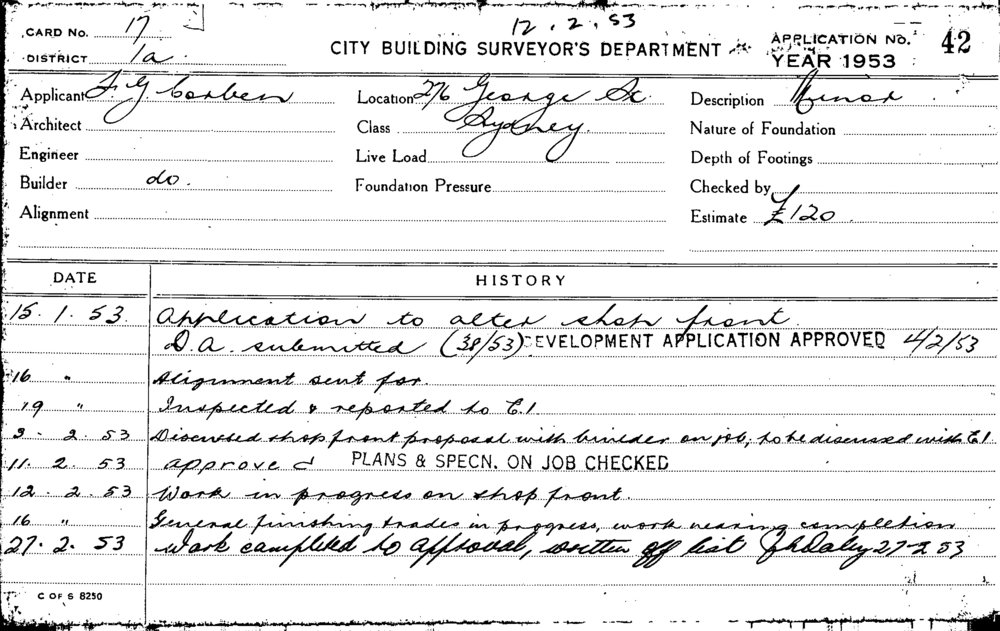 12.2.53
CARD No. 17
DISTRICT 1a
CITY BUILDING SURVEYOR'S DEPARTMENT
APPLICATION No. 42
YEAR 1953
Applicant F G Corben Location 276 George St. Description Minor
Architect Class Sydney. Nature of Foundation
Engineer Live Load Depth of Footings
Builder do. Foundation Pressure Checked by
Alignment Estimate £120
DATE HISTORY
15.1.53. Application to alter shop front.
D.A. submitted (38/53) DEVELOPMENT APPLICATION APPROVED 4/2/53
16 " Alignment sent for.
19 " Inspected & reported to C.I.
3.2.53 Discussed shop front proposal with builder on job, to be discussed with C.I
11.2.53 approved PLANS & SPECN. ON JOB CHECKED
12.2.53 Work in progress on shop front.
16 " General finishing trades in progress, work nearing completion
27.2.53 Work completed to approval, written off list Daley 27-2 53
C OF S 8250